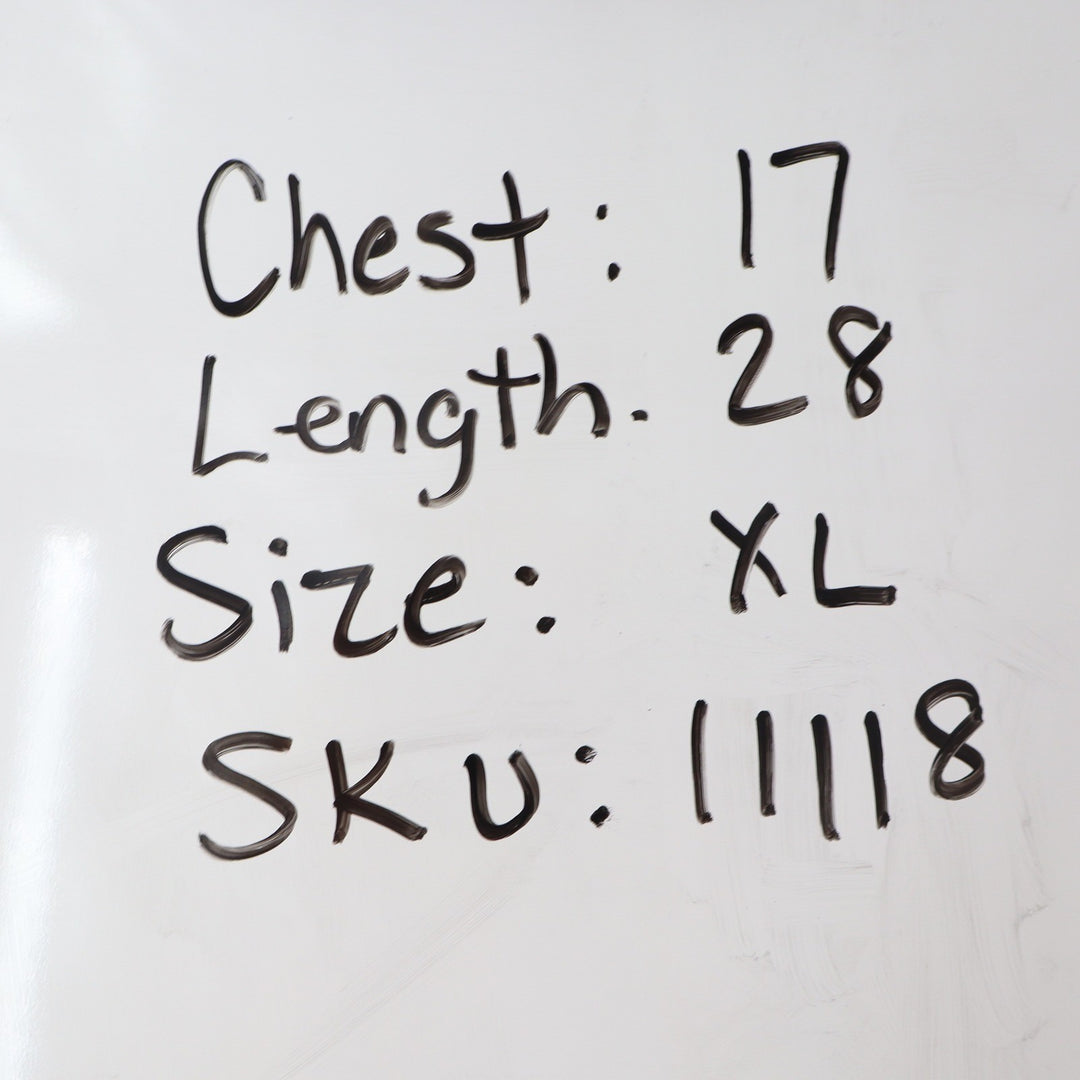 Chest: 17
Length. 28
Size: XL
SKU: 11118